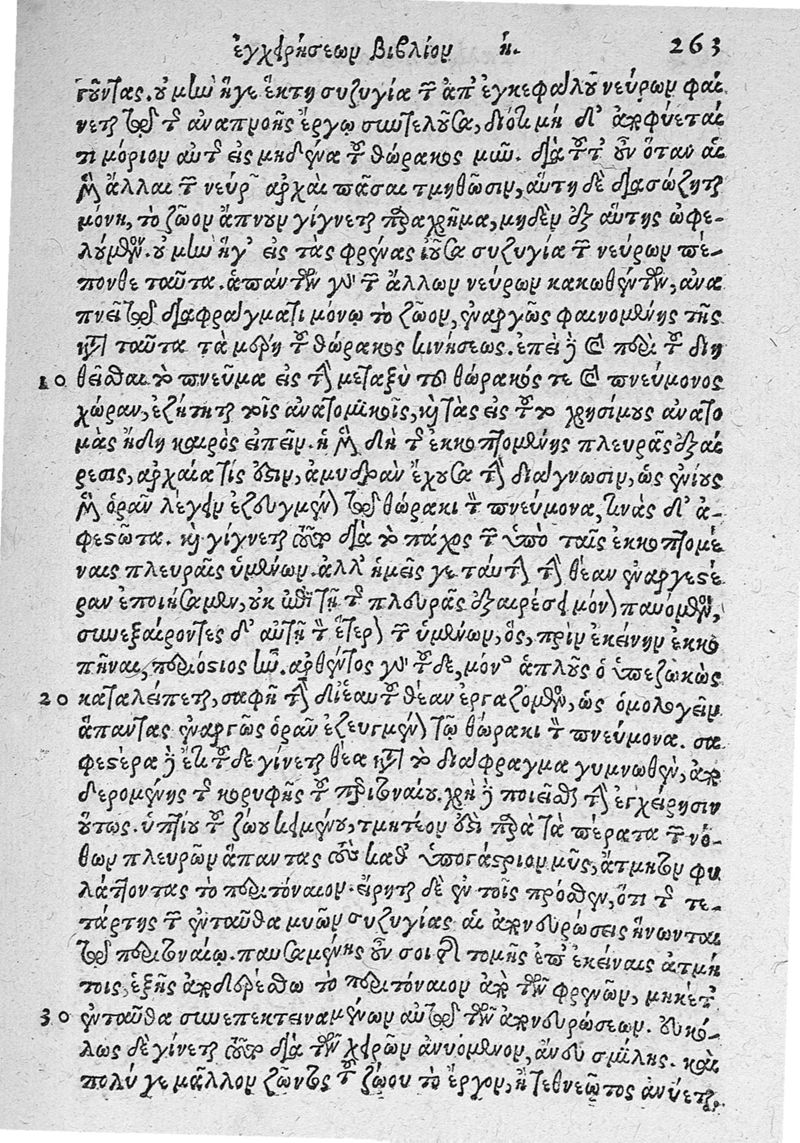 ἐγχειρήσεων βιβλίον ή. 263
γοῦντας. οὐ μὴν ἥγε ἕκτη συζυγία τῶν ἀπ' ἐγκεφάλου νεύρων φαί
νεται τῷ τῆς ἀναπνοῆς ἔργῳ συντελοῦσα, διότι μὴ δ' ἀποφύεταί
τι μόριον αὐτῆς εἰς μηδένα τοῦ θώρακος μῦν. διὰ τοῦτ' οὖν ὅταν αἱ
μὲν ἄλλαι τῶν νεύρων ἀρχαὶ πᾶσαι τμηθῶσιν, αὕτη δὲ διασώζηται
μόνη, τὸ ζῶον ἄπνουν γίγνεται παραχρῆμα, μηδὲν ἐξ αὕτης ὠφε-
λούμενον. οὐ μὴν ἥγ' εἰς τὰς φρένας ἰοῦσα συζυγία τῶν νεύρων πέ-
πονθε ταῦτα. ἁπάντων γοῦν τῶν ἄλλων νεύρων κακωθέντων, ἀνα
πνεῖ τῷ διαφράγματι μόνῳ τὸ ζῶον, ἐναργῶς φαινομένης τῆς
κατὰ ταῦτα τὰ μέρη τοῦ θώρακος κινήσεως. ἐπεὶ δὲ καὶ περὶ τοῦ διη
10 θεῖσθαι τὸ πνεῦμα εἰς τὴν μεταξὺ τοῦ θώρακός τε καὶ πνεύμονος
χώραν, ἐζήτηται τοῖς ἀνατομικοῖς, καὶ τὰς εἰς τοῦτο χρησίμους ἀνατο
μὰς ἤδη καιρὸς εἰπεῖν. ἡ μὲν δὴ τῆς ἐκκοπτομένης πλευρᾶς ἐξαί
ρεσις, ἀρχαία τίς ἐστιν, ἀμυδρὰν ἔχουσα τὴν διάγνωσιν, ὡς ἐνίους
μὲν ὁρᾶν λέγειν ἐζευγμένον τῷ θώρακι τὸν πνεύμονα, τινὰς δ' ἀ-
φεστῶτα. καὶ γίγνεται τοῦτο διὰ τὸ πάχος τῶν ὑπὸ ταῖς ἐκκοπτομέ
ναις πλευραῖς ὑμένων. ἀλλ' ἡμεῖς γε ταύτην τὴν θέαν ἐναργεστέ
ραν ἐποιήσαμεν, οὐκ ἐπὶ τῇ τῆς πλευρᾶς ἐξαιρέσει μόνον παυόμενοι,
συνεξαίροντες δ' αὐτῇ τὸν ἕτερον τῶν ὑμένων, ὅς, πρὶν ἐκείνην ἐκκο
πῆναι, περιόστιος ἦν. ἀρθέντος γοῦν τοῦδε, μόνος ἁπλοῦς ὁ ὑπεζωκὼς
20 καταλείπεται, σαφῆ τὴν δι' ἑαυτοῦ θέαν ἐργαζόμενος, ὡς ὁμολογεῖν
ἅπαντας ἐναργῶς ὁρᾶν ἐζευγμένον τῷ θώρακι τὸν πνεύμονα. σα
φεστέρα δὲ ἐκ τοῦδε γίνεται θέα κατὰ τὸ διάφραγμα γυμνωθέν, ἀπο
δερομένης τῆς κορυφῆς τοῦ περιτοναίου. χρὴ δὲ ποιεῖσθαι τὴν ἐγχείρησιν
οὕτως. ὑπτίου τοῦ ζώου κειμένου, τμητέον ἐστὶ παρὰ τὰ πέρατα τῶν νό-
θων πλευρῶν ἅπαντας τοὺς καθ' ὑπογάστριον μῦς, ἄτμητον φυ
λάττοντας τὸ περιτόναιον. εἴρηται δὲ ἐν τοῖς πρόσθεν, ὅτι τῆς τε-
τάρτης τῶν ἐνταῦθα μυῶν συζυγίας αἱ ἀπονευρώσεις ἥνωνται
τῷ περιτοναίῳ. παυσαμένης οὖν σοι τῆς τομῆς ἐπ' ἐκείναις ἀτμή
τοις, ἑξῆς ἀποδερέσθω τὸ περιτόναιον ἀπὸ τῶν φρενῶν, μηκέτ'
30 ἐνταῦθα συνεπεκτειναμένων αὐτῷ τῶν ἀπονευρώσεων. εὐκό-
λως δὲ γίνεται τοῦτο διὰ τῶν χειρῶν ἀνυόμενον, ἄνευ σμίλης. καὶ
πολύ γε μᾶλλον ζῶντος τοῦ ζώου τὸ ἔργον, ἢ τεθνεῶτος ἀνύεται.